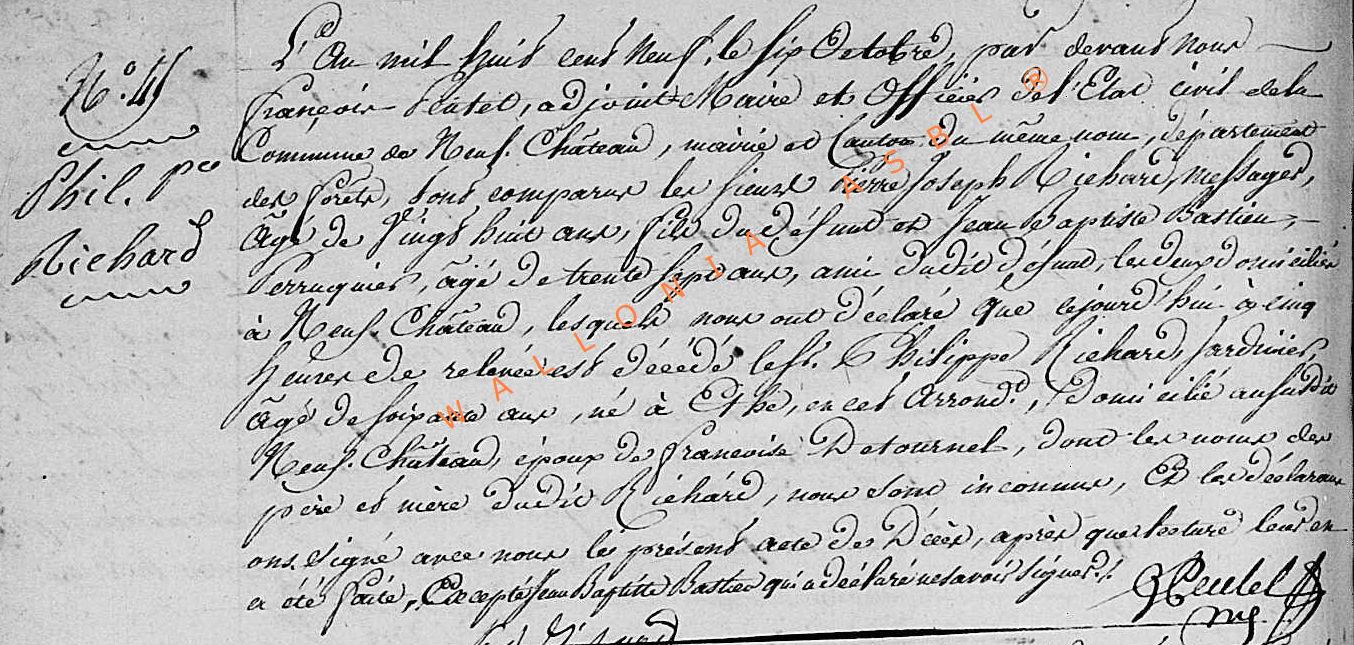 N.° 41
Phil. Pe
Richard
L'An mil huit cent Neuf, le six Octobre, par devant Nous
François Peutel, adjoint Maire et Officier de l'Etat civil de la
Commune de Neuf-Château, mairie et Canton du même nom, département
des forêts, sont comparus les sieurs Pierre Joseph Richard, messager,
âgé de vingt huit ans, fils du défunt et Jean Baptiste Bastien,
Perruquier, âgé de trente sept ans, ami dudit défunt, les deux domiciliés
à Neuf-Château, lesquels nous ont déclaré que cejourd'hui à cinq
heures de relevée est décédé le Sr. Philippe Richard, Jardinier,
âgé de soixante ans, né à Ethe, en cet Arrond.t, domicilié au susdit
Neuf-Château, époux de françoise Detournel, dont les noms des
père et mère dudit Richard, nous sont inconnus, Et les déclarans
ont signé avec nous le présent acte de Décès, après que lecture leur en
a été faite, Excepté Jean Baptiste Bastien qui a déclaré ne savoir signer./.
Peutel
WALLONIA ASBL ®